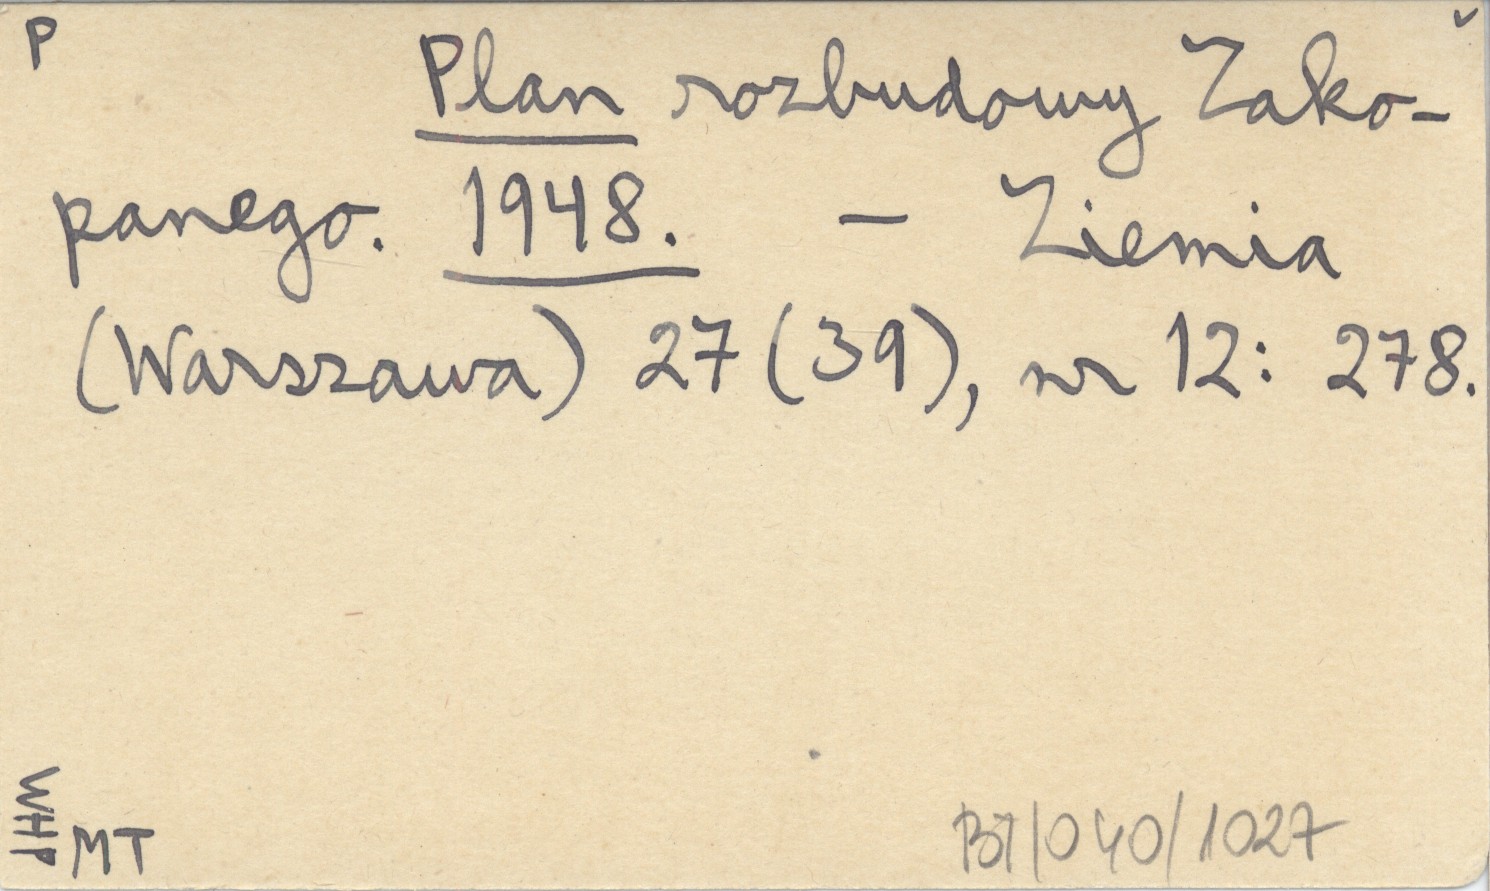 P
Plan rozbudowy Zako-
panego. 1948. – Ziemia
(Warszawa) 27 (39), nr 12: 278.
WHP
MT
BT/040/1027